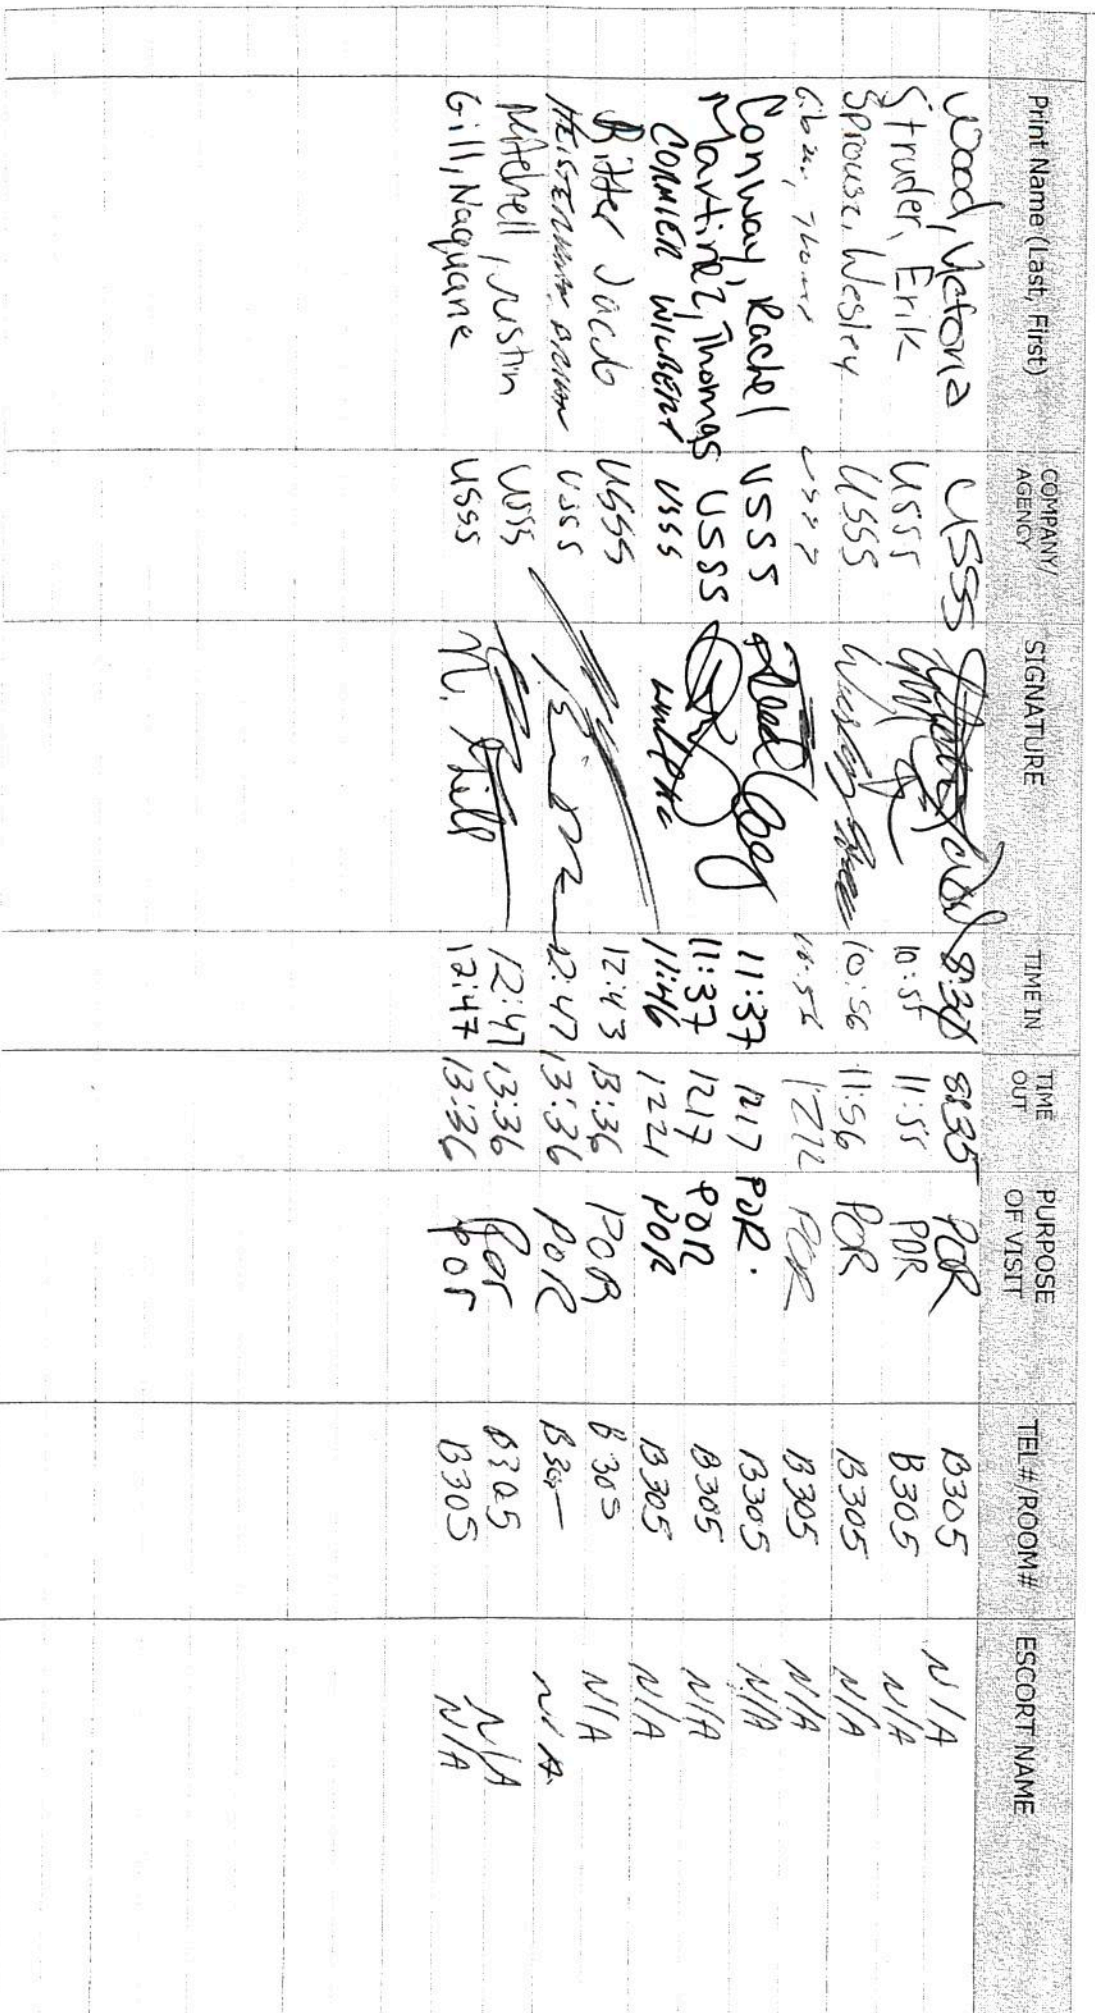 Print Name (Last, First) COMPANY/ AGENCY SIGNATURE TIME IN TIME OUT PURPOSE OF VISIT TEL#/ROOM# ESCORT NAME
Wood, Victoria USSS 8:30 8:35 POR B305 N/A
Struder, Erik USSS 10:55 11:55 POR B305 N/A
Sprouse, Wesley USSS 10:56 11:56 POR B305 N/A
POR B305 N/A
Conway, Rachel USSS 11:37 1217 POR. B305 N/A
Martinez, Thomas USSS 11:37 1217 POR B305 N/A
CORMIER WILBERT USSS 11:46 1221 POR B305 N/A
Ritter Jacob USSS 12:43 13:36 POR B305 N/A
USSS 12:47 13:36 POR N/A
Mitchell, Justin USSS 12:47 13:36 Por B305 N/A
Gill, Naquane USSS N. Gill 12:47 13:36 Por B305 N/A